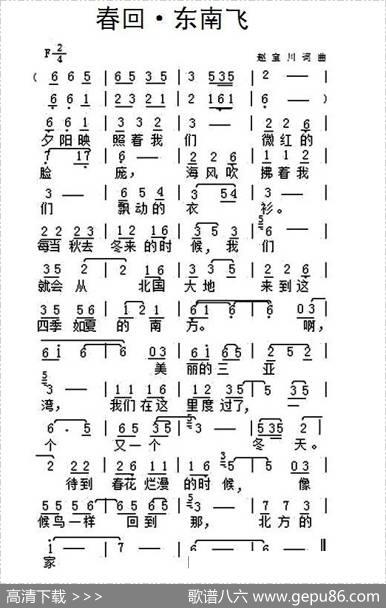 春回·东南飞
F 2/4
赵宝川词曲
( 6 6 5 | 6 5 3 5 | 3 5 3 5 | 2 — |
6 6 1 | 2 3 2 1 | 2 1 6 1 | 6 — )
6 6 1 | 3 3 3 | 3 — | 2 2 6 |
夕阳映 照着我 们 微红的
7 1 7 | 6 — | 2 2 6 | 1 1 2 |
脸 庞, 海风吹 拂着我
3 — | 6 5 4 | 3 5 4 | 3 — |
们 飘动的 衣 衫。
2 2 2 3 | 2 2 1 6 | 3 5 3 | 6 — |
每当秋去 冬来的时 候,我 们
3 5 2 | 2 1 6 | 3 3 5 | 2 2 6 |
就会从 北国 大地 来到这
3 5 5 6 | 1 6 5 | 6 1 6 | 6 0 3 |
四季如夏 的南 方。 啊,
6 i 6 | 6 0 3 | 6 6 5 | 2 5 2 |
美 丽的三 亚
3 — | 1 1 1 6 | 1 2 3 5 | 5 3 5 |
湾, 我们在这 里度过了, 一
6 · 5 | 6 5 3 5 | 3 — | 5 3 5 2 |
个 又一个 冬 天。
2 2 2 | 2 6 1 1 | 1 6 5 | 5 0 3 |
待到 春花烂漫 的时候, 像
5 5 5 6 | 5 1 6 | 3 — | 7 7 3 |
候鸟一样 回到 那, 北方的
i — | 7 — | 6 — | 6 — ‖
家
高清下载 >>>
歌谱八六 www.gepu86.com